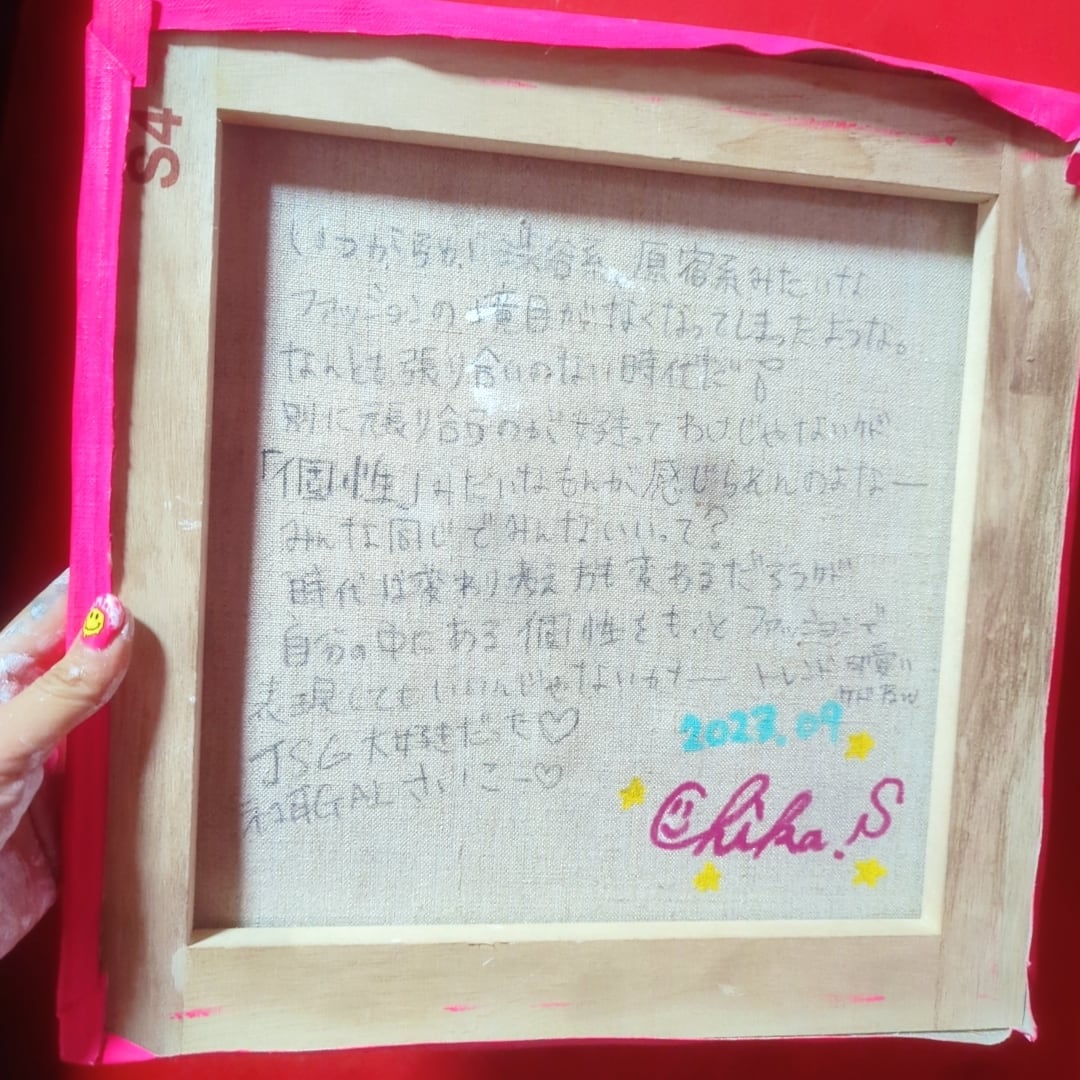 S4
いつからか、渋谷系、原宿系みたいな
ファッションの境目がなくなってしまったような。
なんとも張り合いのない時代だ
別に張り合うのが好きってわけじゃないけど
「個性」みたいなもんが感じられんのよなー
みんな同じでみんないいって?
時代は変わり考え方も変わるだろうが
自分の中にある個性をもっとファッションで
表現してもいいんじゃないかなー
トレンドも可愛い
けどねw
JSG大好きだった♡
GALさいこー♡
2023.09
Chika.S